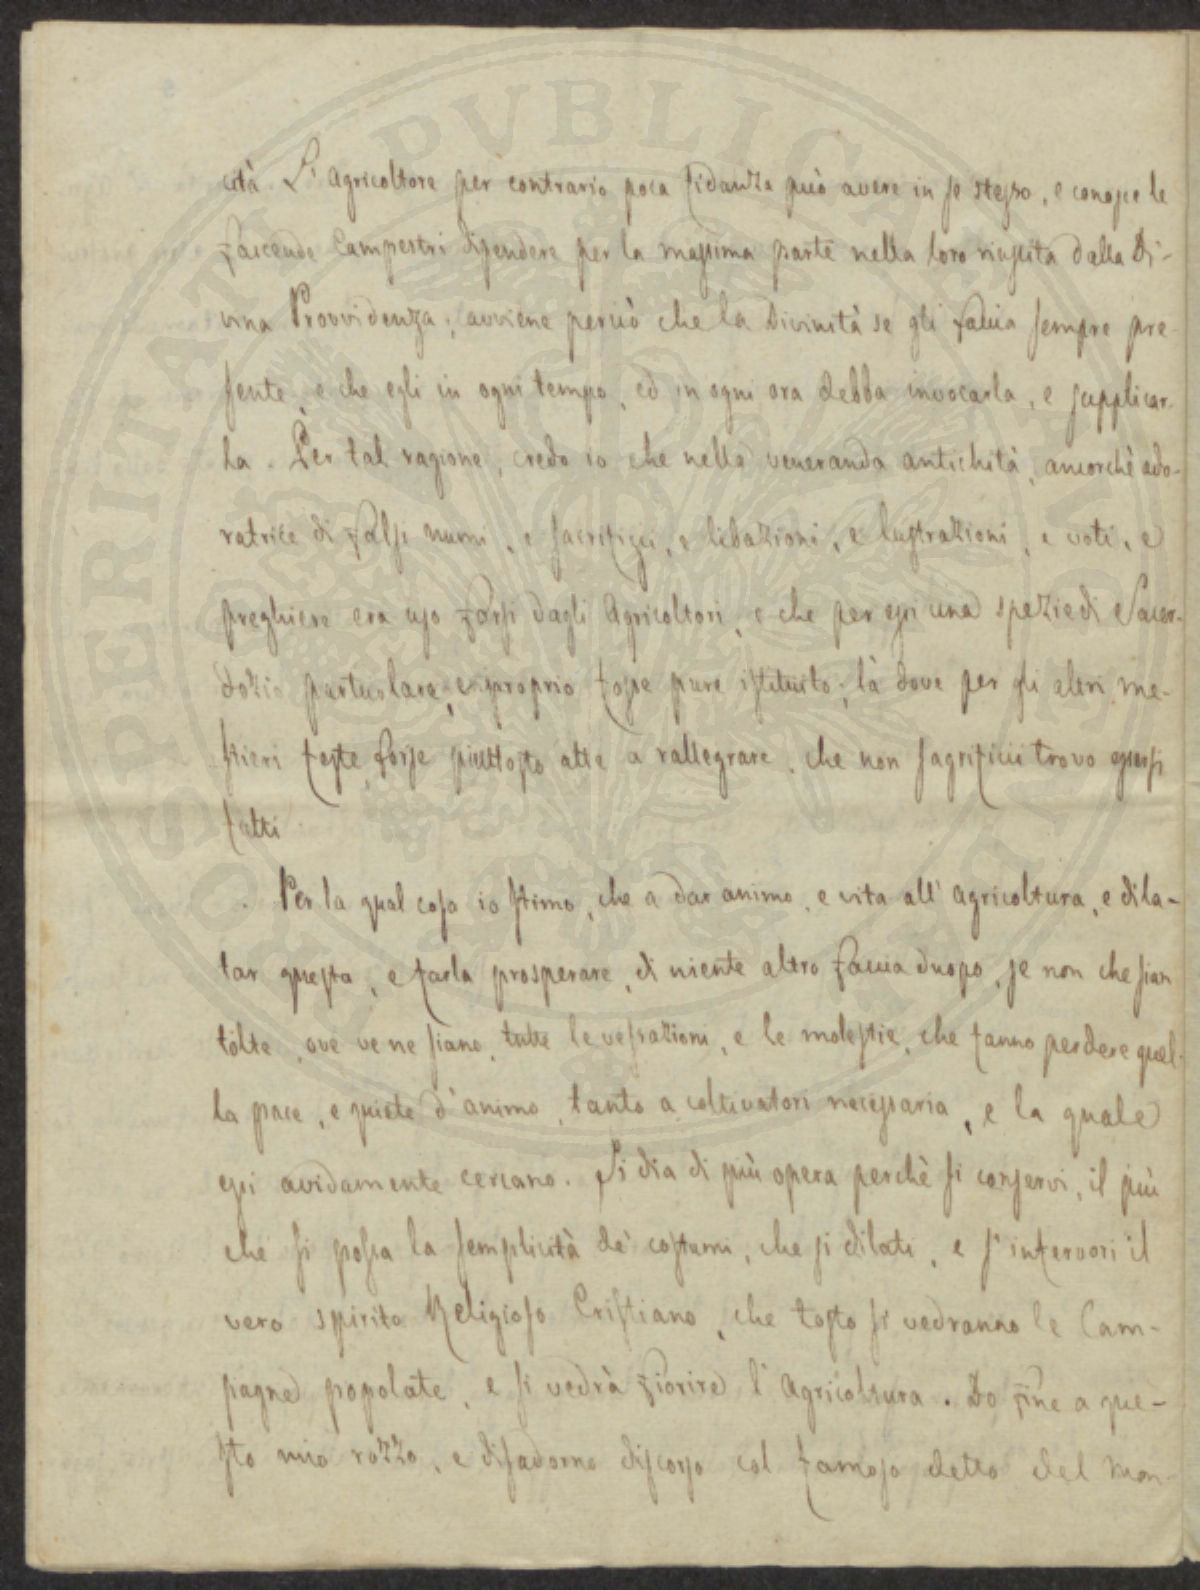 cità L'Agricoltore per contrario poca fidanza può avere in se stesso, e conosce le
faccende Campestri dipendere per la massima parte nella loro riuscita dalla Di-
vina Provvidenza; avviene perciò che la Divinità se gli faccia sempre pre-
sente, e che egli in ogni tempo, ed in ogni ora debba invocarla, e supplicar-
la. Per tal ragione, credo io che nella veneranda antichità, ancorchè ado-
ratrice di falsi numi, e sacrifizj, e libazioni, e lustrazioni, e voti, e
preghiere era uso farsi dagli Agricoltori, e che per essi una spezie di Sacer-
dozio particolare, e proprio fosse pure istituito; là dove per gli altri me-
stieri feste forse piuttosto atte a rallegrare, che non sagrificii trovo essersi
fatti
Per la qual cosa io stimo, che a dar animo, e vita all'Agricoltura, e dila-
tar questa, e farla prosperare, di niente altro faccia duopo, se non che sian
tolte, ove ve ne siano, tutte le vessazioni, e le molestie, che fanno perdere quel-
la pace, e quiete d'animo, tanto a coltivatori necessaria, e la quale
essi avidamente cercano. Si dia di più opera perchè si conservi, il più
che si possa la semplicità de' costumi, che si dilati, e s'infervori il
vero spirito Religioso Cristiano, che tosto si vedranno le Cam-
pagne popolate, e si vedrà fiorire l'Agricoltura. Do fine a que-
sto mio rozzo, e disadorno discorso col famoso detto del Man-
PROSPERITATI PVBLICAE